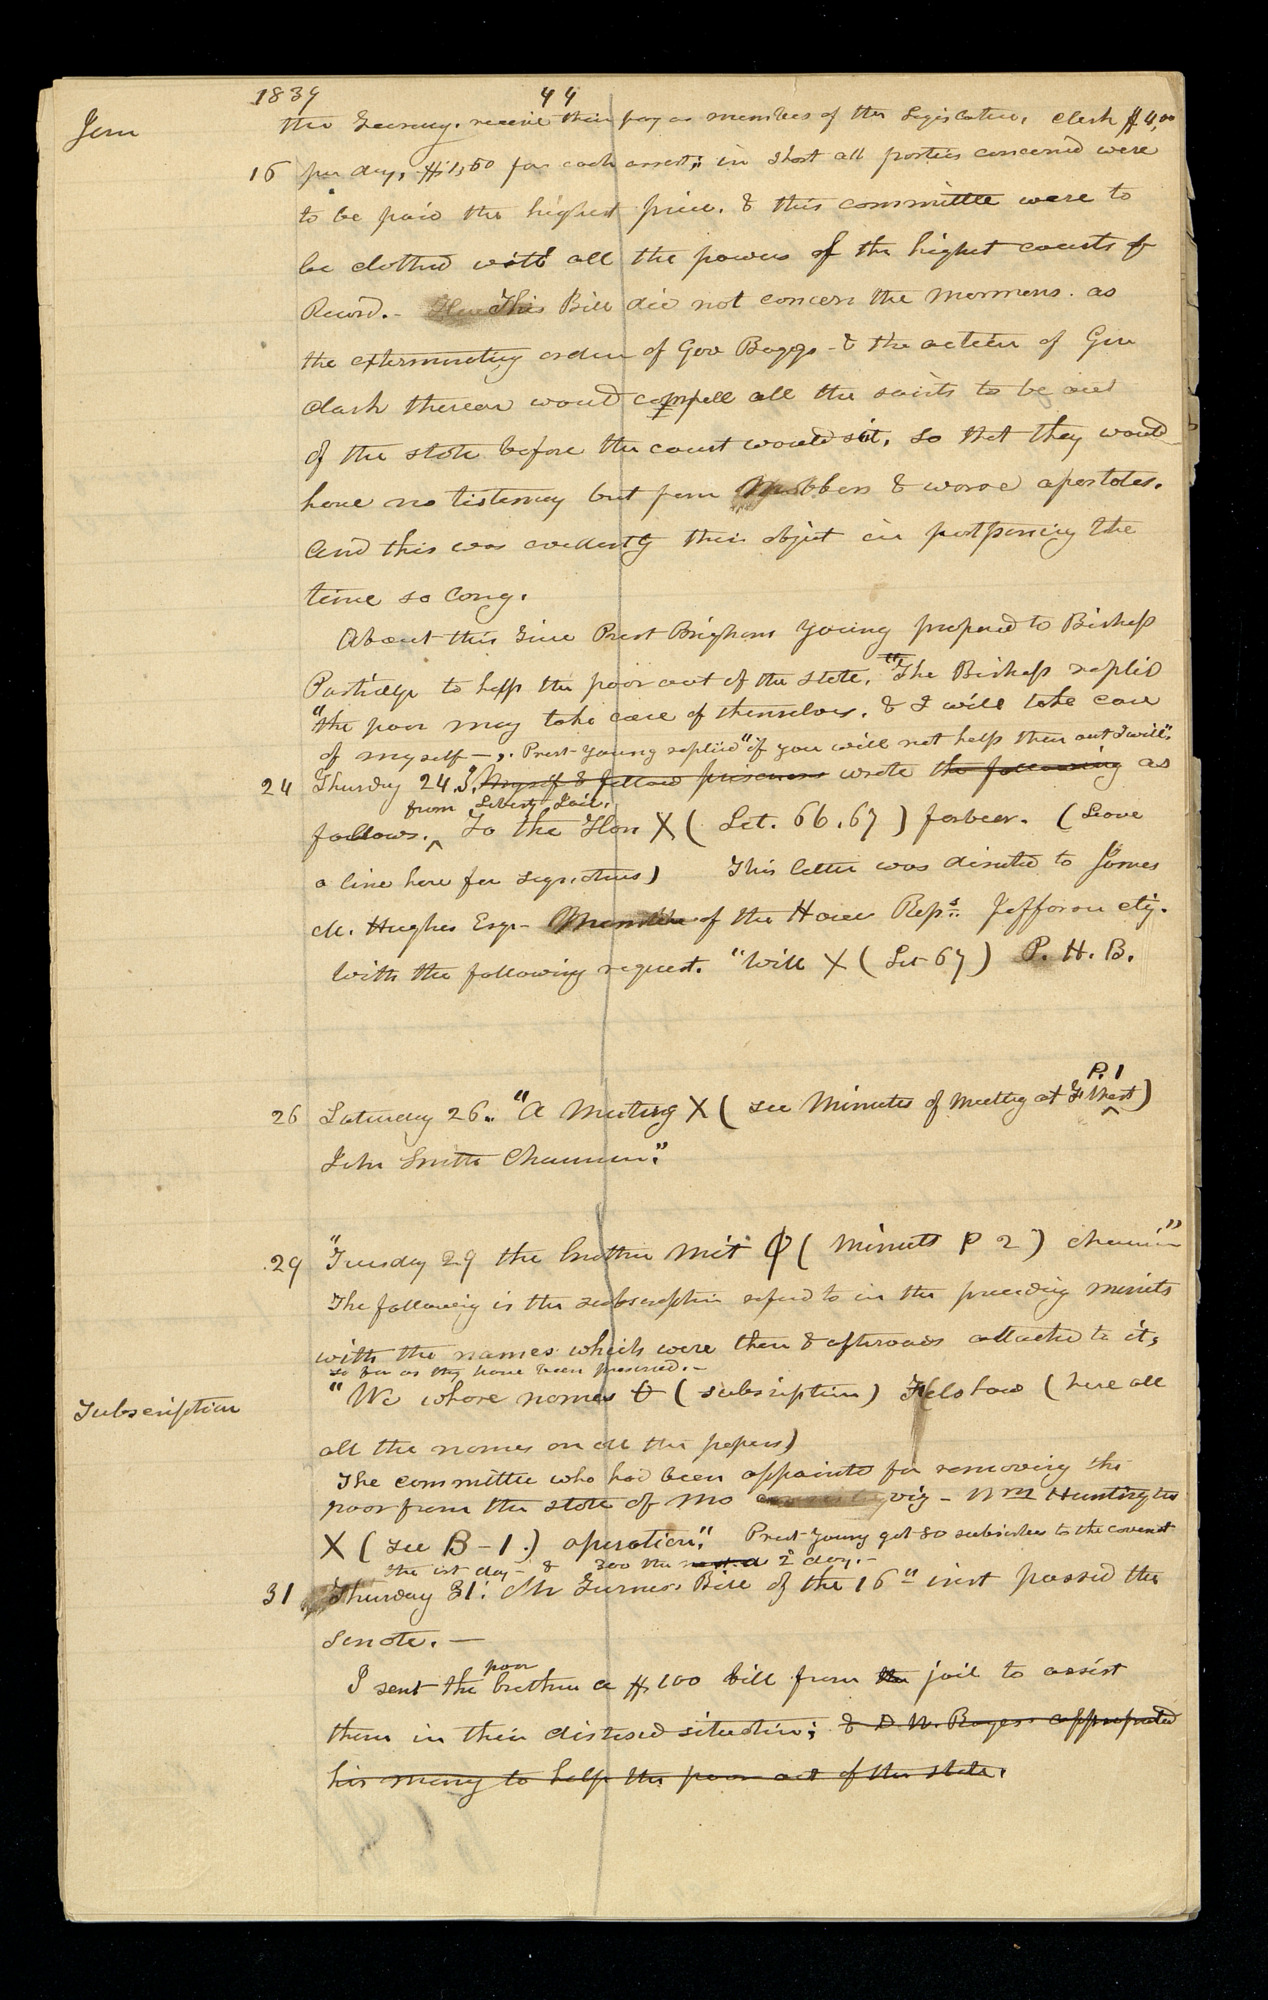 1839
44
Jan
the Treasury. receive their pay as members of the Legislature, clerk $4,00
16 per day, $1,50 for each arrest; in short all parties concerned were
to be paid the highest price. & this committee were to
be clothed with all the powers of the highest courts of
Record.- This Bill did not concern the mormons. as
the exterminating orders of Gov Boggs - & the action of Gen
clark thereon would compell all the saints to be out
of the state before the court would sit, so that they would
have no testimony but from Mobbers & worse apostates.
And this was evidently their object in postponing the
time so long.
About this time Prest Brigham Young proposed to Bishop
Partridge to help the poor out of the state. The Bishop replied
"the poor may take care of themselves, & I will take care
of myself -". Prest Young replied "if you will not help them out I will".
24 Thursday 24. I, Myself & fellow prisoners wrote the following as
from Liberty Jail,
follows. To the Hon X ( Let. 66, 67 ) forbear. (Leave
a line here for signatures) This letter was directed to James
M. Hughes Esqr- Member of the House Reps. Jefferson city.
with the following request. "Will X ( Let 67 ) P. H. B.
P. 1
26 Saturday 26. "A Meeting X ( see Minutes of Meeting at F. West )
John Smith Chairman."
29 "Tuesday 29 the brethren met ϕ ( minuts P 2 ) chairman"
The following is the subscription refered to in the preceding minits
with the names which were then & afterwards attached to it,
so far as they have been preserved.-
Subscription
"We whose names & (subscription) Felshaw (here all
all the names on all the papers)
The committee who had been appointed for removing the
poor from the state of Mo viz - Wm Huntington
X ( see B - 1.) operation". Prest Young got 80 subscribers to the covenant
the 1st day - & 300 the next d 2d day.-
31 Thursday 31. Mr Turners Bill of the 16" inst passed the
senate. -
poor
I sent the brethren a $100 bill from the jail to assist
them in their distressed situation; & D. W. Rogers appropriated
his money to help the poor out of the state.